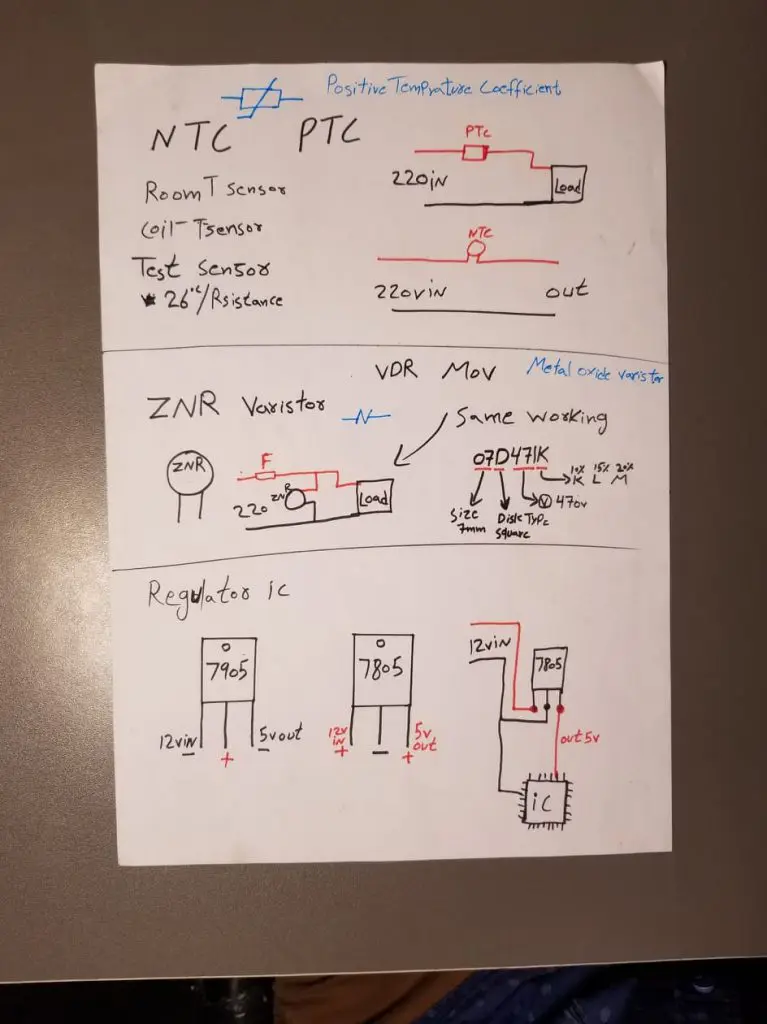 Positive Temprature Coefficient
NTC PTC
PTC
220iN
Load
Room T sensor
Coil-Tsensor
Test sensor
* 26°c/Rsistance
NTC
220vin out
VDR MOV Metal oxide varister
ZNR Varistor
Same working
ZNR
F
ZNR
220
Load
07D471K
10% 15% 20%
K L M
470v
V
Size
7mm
Disk Type
Square
Regulator ic
7905
12vin
-
+
5vout
-
7805
12v
in
+
-
5v
out
+
12vin
7805
out 5v
iC